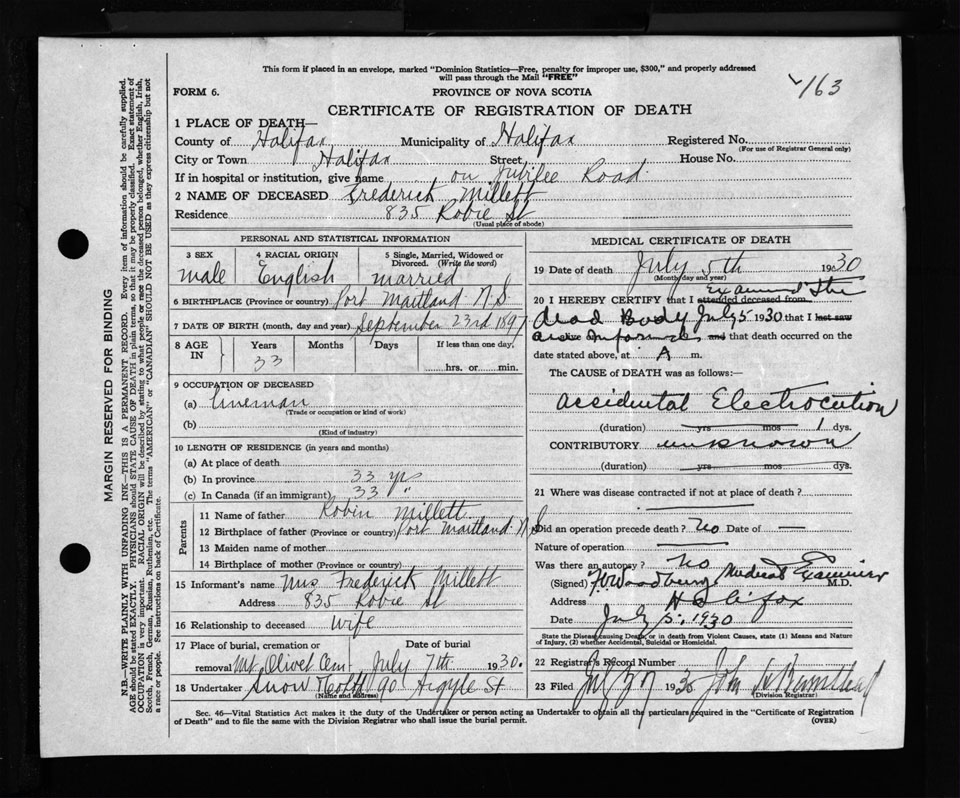 This form if placed in an envelope, marked "Dominion Statistics—Free, penalty for improper use, $300," and properly addressed
will pass through the Mail "FREE"
163
FORM 6. PROVINCE OF NOVA SCOTIA
CERTIFICATE OF REGISTRATION OF DEATH
1 PLACE OF DEATH—
County of Halifax Municipality of Halifax Registered No.
(For use of Registrar General only)
City or Town Halifax Street House No.
If in hospital or institution, give name on Jubilee Road
2 NAME OF DECEASED Frederick Millett
Residence 835 Robie St
(Usual place of abode)
PERSONAL AND STATISTICAL INFORMATION
3 SEX 4 RACIAL ORIGIN 5 Single, Married, Widowed or
Divorced. (Write the word)
male English married
6 BIRTHPLACE (Province or country) Port Maitland N.S.
7 DATE OF BIRTH (month, day and year) September 23rd 1897
8 AGE IN Years Months Days If less than one day,
33 hrs. or min.
9 OCCUPATION OF DECEASED
(a) lineman
(Trade or occupation or kind of work)
(b)
(Kind of industry)
10 LENGTH OF RESIDENCE (in years and months)
(a) At place of death
(b) In province 33 yrs
(c) In Canada (if an immigrant) 33 "
Parents
11 Name of father Robin Millett
12 Birthplace of father (Province or country) Port Maitland N.S
13 Maiden name of mother
14 Birthplace of mother (Province or country)
15 Informant's name Mrs Frederick Millett
Address 835 Robie St
16 Relationship to deceased wife
17 Place of burial, cremation or Date of burial
removal Mt. Olivet Cem July 7th 1930.
18 Undertaker Snow & Co Ltd 90 Argyle St
(Name and address)
MEDICAL CERTIFICATE OF DEATH
19 Date of death July 5th 1930
(Month, day and year)
Examined the
20 I HEREBY CERTIFY that I attended deceased from
dead Body July 5 1930 that I last saw
and that death occurred on the
date stated above, at A m.
The CAUSE of DEATH was as follows:—
accidental Electrocution
(duration) yrs mos dys.
CONTRIBUTORY unknown
(duration) yrs mos dys.
21 Where was disease contracted if not at place of death?
Did an operation precede death? No Date of —
Nature of operation
Was there an autopsy? No
(Signed) Medical Examiner M.D.
Address Halifax
Date July 5. 1930
State the Disease causing Death, or in death from Violent Causes, state (1) Means and Nature
of Injury, (2) whether Accidental, Suicidal or Homicidal.
22 Registrar's Record Number
23 Filed July 7 1930 John
(Division Registrar)
Sec. 46—Vital Statistics Act makes it the duty of the Undertaker or person acting as Undertaker to obtain all the particulars required in the "Certificate of Registration
of Death" and to file the same with the Division Registrar who shall issue the burial permit. (OVER)
MARGIN RESERVED FOR BINDING
N.B.—WRITE PLAINLY WITH UNFADING INK—THIS IS A PERMANENT RECORD. Every item of information should be carefully supplied.
AGE should be stated EXACTLY. PHYSICIANS should STATE CAUSE OF DEATH in plain terms, so that it may be properly classified. Exact statement of
OCCUPATION is very important. RACIAL ORIGIN will be described by stating to what people or race the deceased person belonged, whether English, Irish,
Scotch, French, German, Russian, Ruthenian, etc. The terms "AMERICAN" or "CANADIAN" SHOULD NOT BE USED as they express citizenship but not
a race or people. See instructions on back of Certificate.